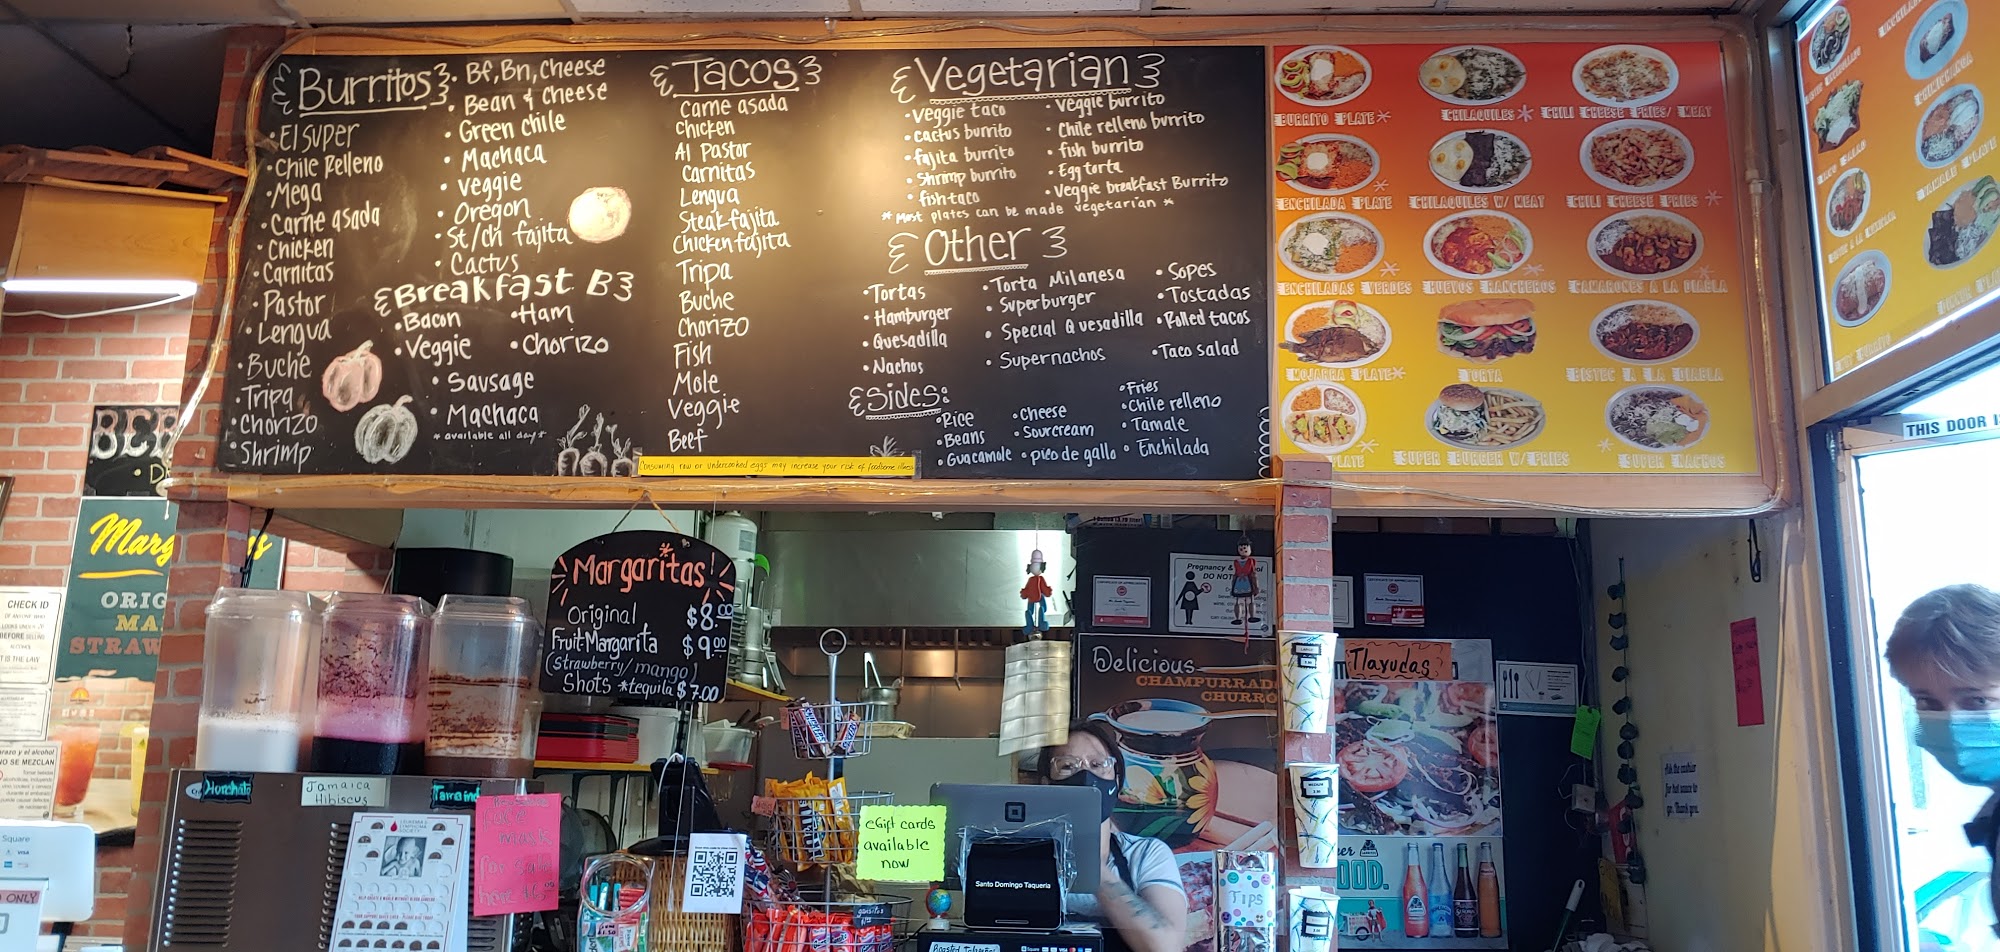 Burritos
• El Super
• Chile Relleno
• Mega
• Carne asada
• Chicken
• Carnitas
• Pastor
• Lengua
• Buche
• Tripa
• Chorizo
• Shrimp
• Bf, Bn, Cheese
• Bean & Cheese
• Green chile
• Machaca
• Veggie
• Oregon
• St/Ch fajita
• Cactus
Breakfast B
• Bacon
• Ham
• Veggie
• Chorizo
• Sausage
• Machaca
* available all day *
Tacos
Carne asada
Chicken
Al Pastor
Carnitas
Lengua
Steak fajita
Chicken fajita
Tripa
Buche
Chorizo
Fish
Mole
Veggie
Beef
Consuming raw or undercooked eggs may increase your risk of foodborne illness
Vegetarian
• Veggie taco
• cactus burrito
• fajita burrito
• Shrimp burrito
• fish taco
• Veggie burrito
• Chile relleno burrito
• fish burrito
• Egg torta
• Veggie breakfast Burrito
* Most plates can be made vegetarian *
Other
• Tortas
• Hamburger
• Quesadilla
• Nachos
• Torta Milanesa
• Superburger
• Special Quesadilla
• Supernachos
• Sopes
• Tostadas
• Rolled tacos
• Taco salad
Sides:
• Rice
• Beans
• Guacamole
• Cheese
• Sourcream
• pico de gallo
• Fries
• Chile relleno
• Tamale
• Enchilada
BURRITO PLATE*
CHILAQUILES*
CHILI CHEESE FRIES/ MEAT
ENCHILADA PLATE
CHILAQUILES W/ MEAT
CHILI CHEESE FRIES *
ENCHILADAS VERDES
HUEVOS RANCHEROS
CAMARONES A LA DIABLA
MOJARRA PLATE*
TORTA
BISTEC A LA DIABLA
PLATE
SUPER BURGER W/ FRIES
SUPER NACHOS
THIS DOOR
Margaritas!
Original $8.00
Fruit Margarita $9.00
(strawberry/mango)
Shots *tequila $7.00
CHECK ID
BEFORE SELLING
ALCOHOL
IT IS THE LAW
NO SE MEZCLAN
ORIG
MA
STRAW
Horchata
Jamaica
Hibiscus
Square
VISA
ONLY
for sale
here
eGift cards
available
now
Santo Domingo Taqueria
Pregnancy &
DO NOT
Delicious
CHAMPURRAD
CHURRO
Tlayudas
Tips
OOD.
Ask the cashier
for hot sauce to
go. Thank you.